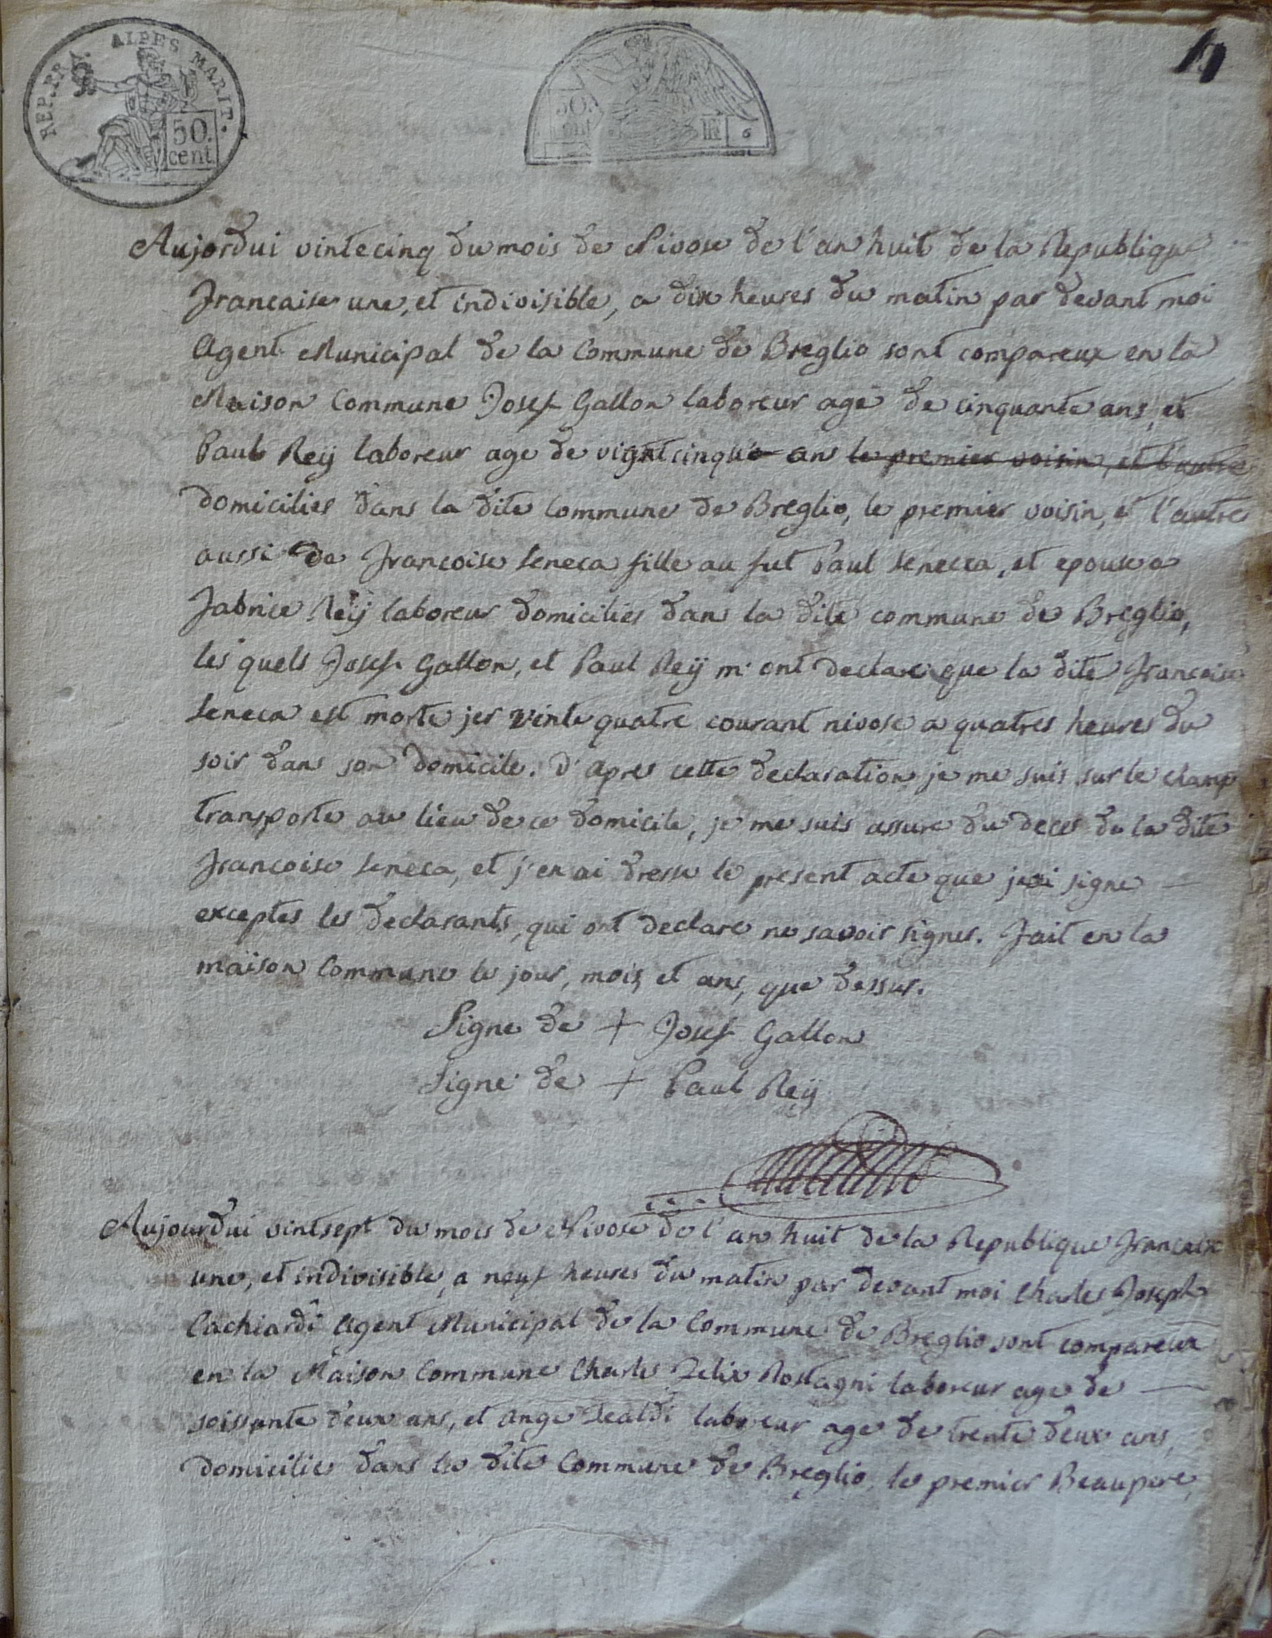 REP. FRA. ALPES MARIT.
50. cent.
50.
4
Aujordui vintecinq du mois de Nivose de l'an huit de la Republique
francaise une, et indivisible, a dix heures du matin par devant moi
Agent Municipal de la Commune de Breglio sont compareux en la
Maison Commune Josef Gallon laboreur age de cinquante ans, et
Paul Reÿ laboreur age de vigntcinque ans le premier voisin, et l'autre
domicilies dans la dite Commune de Breglio, le premier voisin, et l'autre
aussi de francoise Seneca fille au fut Paul Seneca, et epouse a
fabrice Reÿ laboreur domiciliés dans la dite commune de Breglio,
les quels Josef Gallon, et Paul Reÿ m'ont declare que la dite francoise
Seneca est morte jer vinte quatre courant nivose a quatres heures du
soir dans son domicile. D'apres cette declaration je me suis sur le champ
transporte au lieu de ce domicile, je me suis assure du deces de la dite
francoise Seneca, et j'en ai dresse le present acte que jeai signe
exceptes les declarants, qui ont declare ne savoir signer. fait en la
maison Commune le jour, mois, et ans, que dessus.
Signe de + Josef Gallon
Signe de + Paul Reÿ
Aujourdui vintsept du mois de Nivose de l'an huit de la Republique francaise
une, et indivisible, a neuf heures du matin par devant moi Charles Joseph
Cachiardi Agent Municipal de la Commune de Breglio sont compareux
en la Maison Commune Charles Felix Rostagni laboreur age de
soissante deux ans, et Ange laboreur age de trente deux ans,
domicilie dans la dite Commune de Breglio, le premier Beaupere,